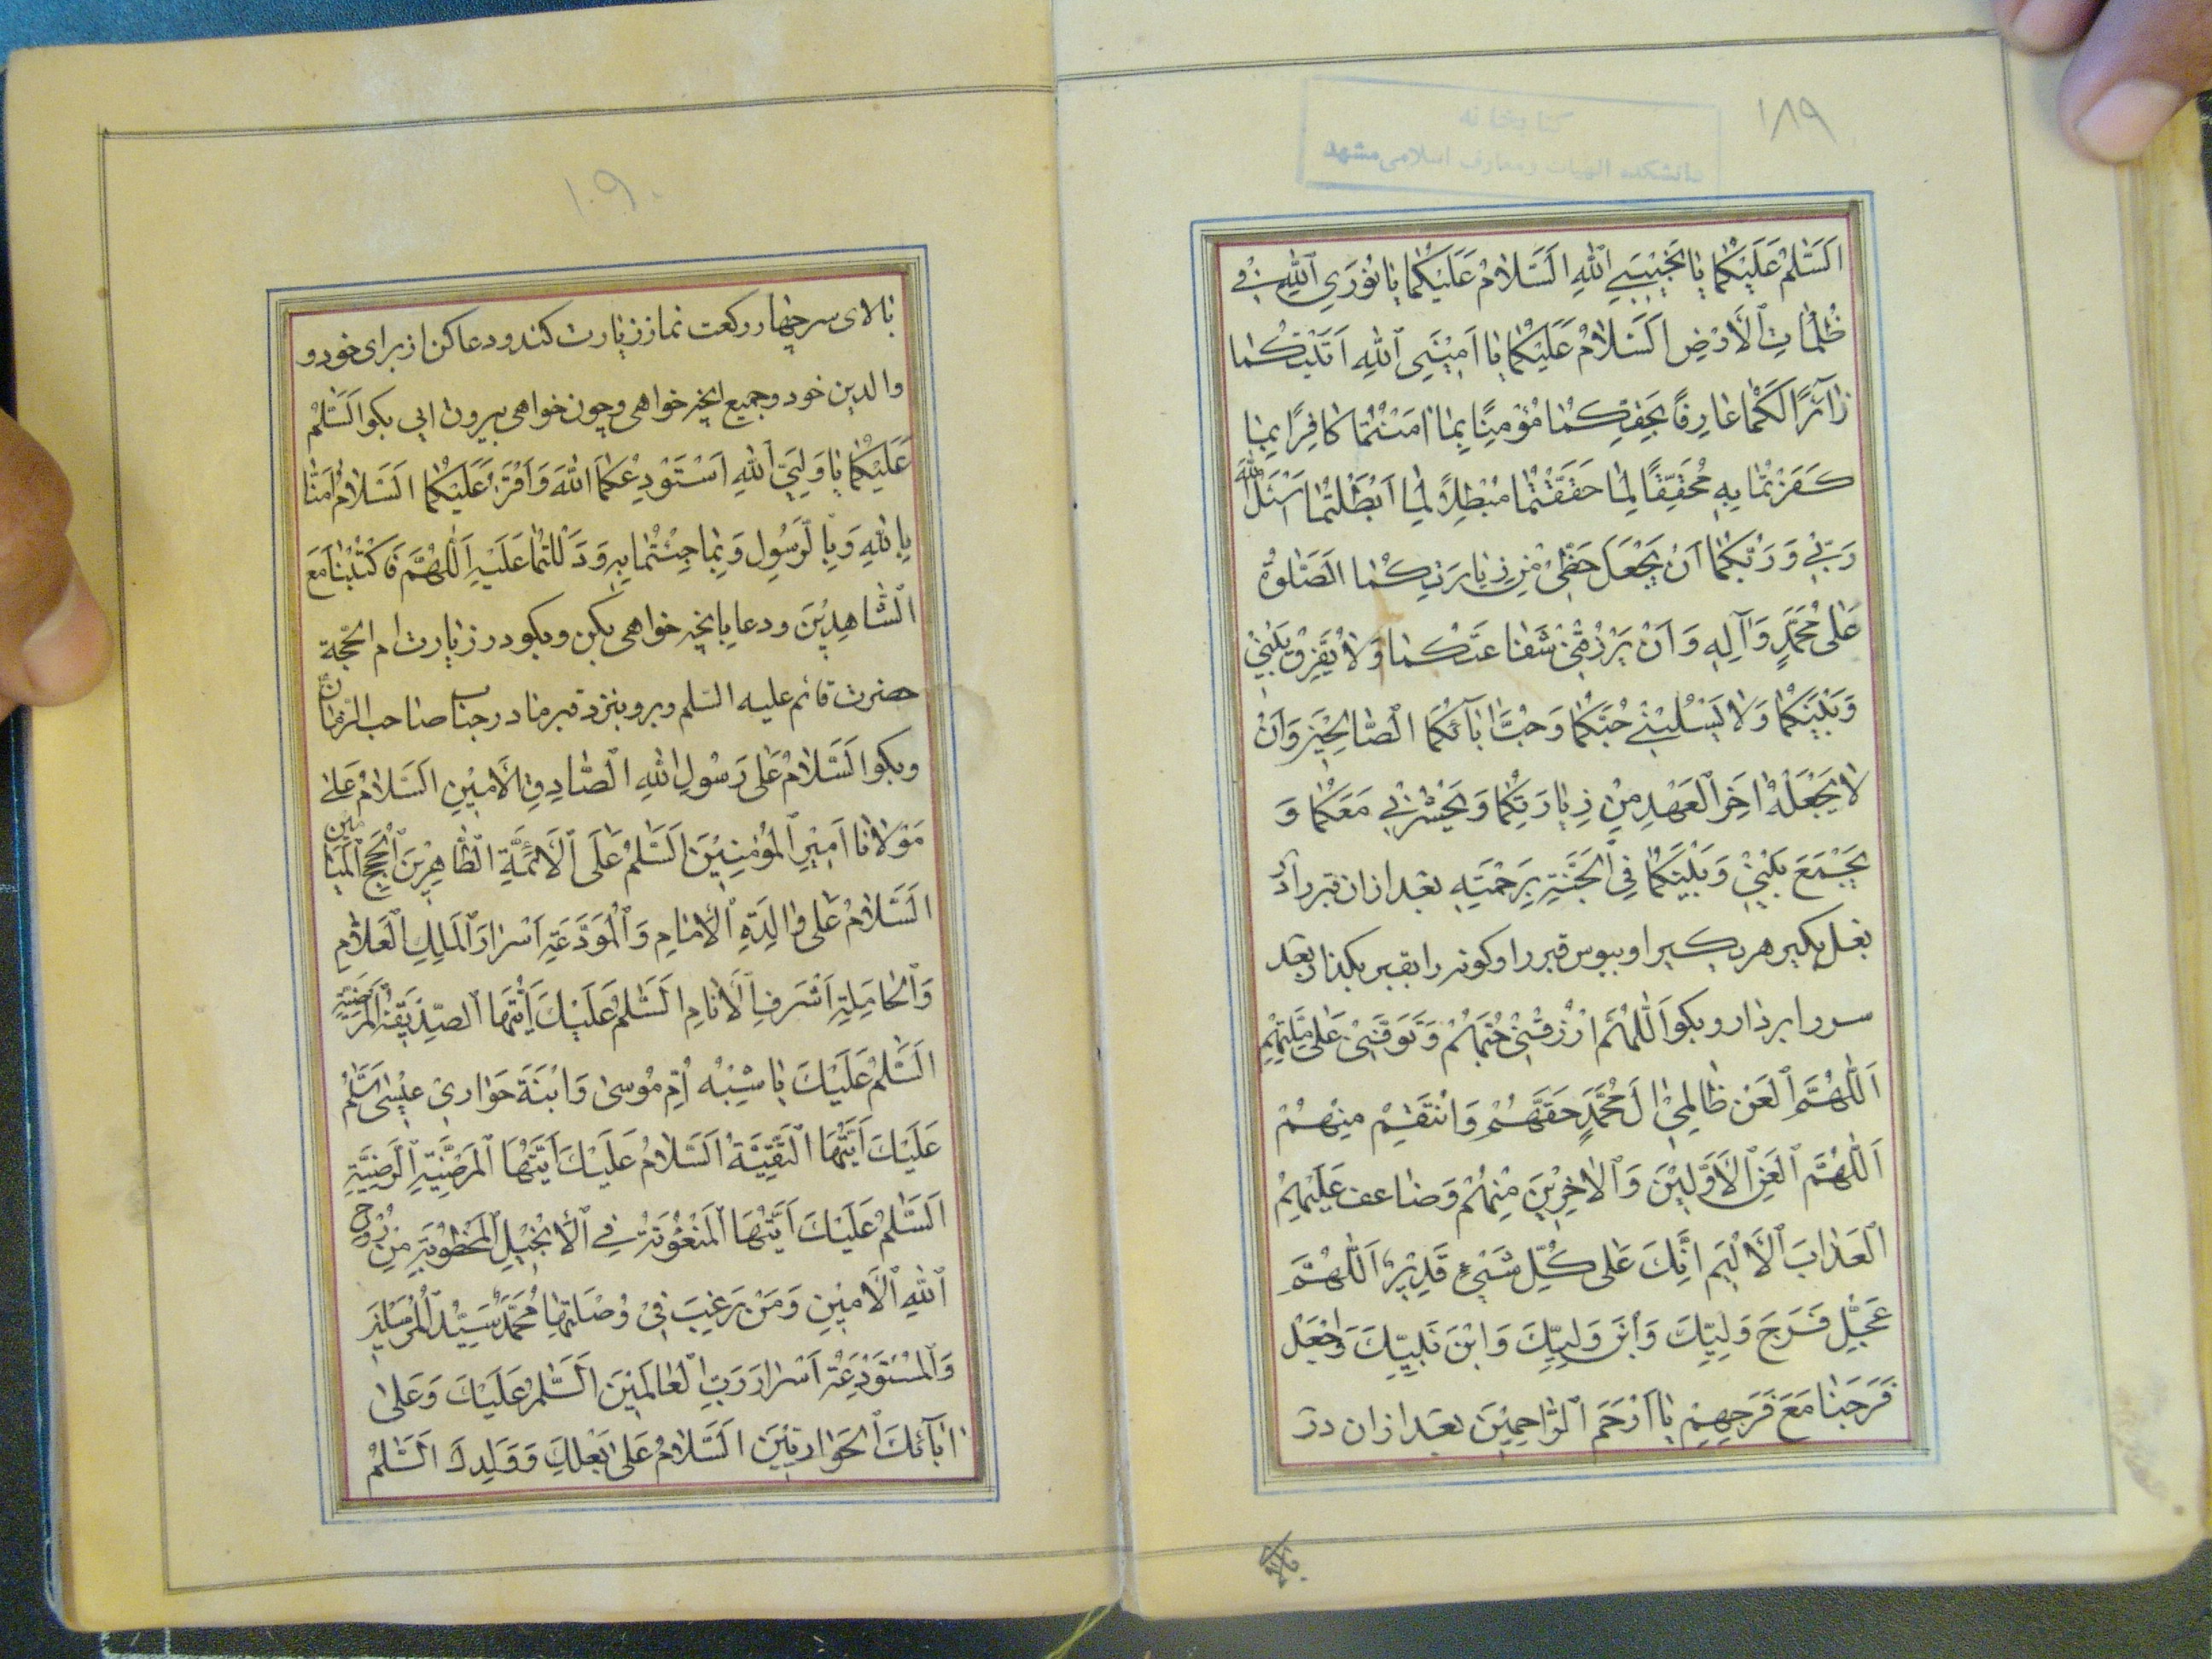 ۱۸۹
كتابخانه
دانشكده الهيات ومعارف اسلامى مشهد
اَلسَّلٰمُ عَلَيْكُمٰا يٰا نَجِيْبَىِ اللهِ اَلسَّلامُ عَلَيْكُمٰا يٰا نُوْرَىِ اللهِ فِي
ظُلُمٰاتِ الْأَرْضِ اَلسَّلامُ عَلَيْكُمٰا يٰا اَمِيْنَىِ اللهِ اَتَيْتُكُمٰا
زٰآئِرًا لَكُمٰا عٰارِفًا بِحَقِّكُمٰا مُؤْمِنًا بِمٰا اٰمَنْتُمٰا كٰافِرًا بِمٰا
كَفَرْتُمٰا بِهِ مُحَقِّقًا لِمٰا حَقَّقْتُمٰا مُبْطِلاً لِمٰا اَبْطَلْتُمٰا اَسْئَلُ اللهَ
رَبِّيْ وَ رَبَّكُمٰا اَنْ يَجْعَلَ حَظِّىْ مِنْ زِيٰارَتِكُمٰا الصَّلٰوةُ
عَلٰى مُحَمَّدٍ وَاٰلِهِ وَ اَنْ يَرْزُقَنِىْ شَفٰاعَتَكُمٰا وَلاٰ يُفَرِّقَ بَيْنِىْ
وَبَيْنَكُمٰا وَلا يَسْلُبْنِىْ حُبَّكُمٰا وَ حُبَّ اٰبٰآئِكُمَا الصّٰالِحِيْنَ وَاَنْ
لاٰ يَجْعَلَهُ اٰخِرَ الْعَهْدِ مِنْ زِيٰارَتِكُمٰا وَ يَحْشُرَنِىْ مَعَكُمٰا وَ
يَجْمَعَ بَيْنِىْ وَبَيْنَكُمٰا فِى الْجَنَّةِ بِرَحْمَتِهِ بعد ازان قبر را در
بغل بكير هر يك را و ببوس قبر را و كونه را بقبر بكذار بعد
سر را بردار و بكو اَللّٰهُمَّ ارْزُقْنِىْ حُبَّهُمْ وَ تَوَفَّنِىْ عَلٰى مِلَّتِهِمْ
اَللّٰهُمَّ الْعَنْ ظٰالِمِىْ اٰلَ مُحَمَّدٍ حَقَّهُمْ وَ انْتَقِمْ مِنْهُمْ
اَللّٰهُمَّ الْعَنِ الْاَوَّلِيْنَ وَ الْاٰخِرِيْنَ مِنْهُمْ وَ ضٰاعف عَلَيْهِمُ
الْعَذٰابَ الْاَلِيْمَ اِنَّكَ عَلٰى كُلِّ شَىْءٍ قَدِيْرٌ اَللّٰهُمَّ
عَجِّلْ فَرَجَ وَلِيِّكَ وَ ابْنَ وَلِيِّكَ وَ ابْنَ نَبِيِّكَ وَاجْعَلْ
فَرَجَنٰا مَعَ فَرَجِهِمْ يٰا اَرْحَمَ الرّٰاحِمِيْنَ بعد ازان در
۱۹۰
بالاى سر چهار ركعت نماز زيارت كند و دعا كن از براى خود و
والدين خود و جميع انچه خواهى و چون خواهى بيرون ايى بكو اَلسَّلٰمُ
عَلَيْكُمٰا يٰا وَلِيَّىِ اللهِ اَسْتَوْدِعُكُمَا اللهَ وَ اَقْرَءُ عَلَيْكُمَا السَّلامُ اٰمَنّٰا
بِاللهِ وَ بِالرَّسُولِ وَ بِمٰا جِئْتُمٰا بِهِ وَ دَلَلْتُمٰا عَلَيْهِ اَللّٰهُمَّ فَاكْتُبْنٰا مَعَ
الشّٰاهِدِيْنَ و دعا بانچه خواهى بكن و بكو در زيارت ام الحجة
حضرت قائم عليه السلم و برو بنزد قبر مادر جناب صاحب الزمان
و بكو اَلسَّلامُ عَلٰى رَسُولِ اللهِ الصّٰادِقِ الْاَمِيْنِ اَلسَّلامُ عَلٰى
مَوْلاٰنٰا اَمِيْرِ الْمُؤْمِنِيْنَ اَلسَّلٰمُ عَلَى الْاَئِمَّةِ الطّٰاهِرِيْنَ الْحُجَجِ الْمَيٰامِين
اَلسَّلامُ عَلٰى وٰالِدَةِ الْاِمٰامِ وَ الْمُوَدَّعَةِ اَسْرٰارَ الْمَلِكِ الْعَلاّٰمِ
وَ الْحٰامِلَةِ اَشْرَفِ الْاَنٰامِ اَلسَّلٰمُ عَلَيْكَ اَيَّتُهَا الصِّدِّيقَةُ الْمَرْضِيَّةِ
اَلسَّلٰمُ عَلَيْكَ يٰا شِبْهَ اُمِّ مُوْسىٰ وَ ابْنَةَ حَوٰارىْ عِيْسٰى اَلسَّلٰمُ
عَلَيْكَ اَيَّتُهَا التَّقِيَّةُ اَلسَّلامُ عَلَيْكَ اَيَّتُهَا الْمَرْضِيَّةِ الرَّضِيَّةِ
اَلسَّلٰمُ عَلَيْكَ اَيَّتُهَا الْمَنْعُوْتَةُ فِى الْاِنْجِيْلِ الْمَخْطُوْبَةِ مِنْ رُوْحِ
اللهِ الْاَمِيْنِ وَ مَنْ رَغِبَ فِىْ وُصْلَتِهٰا مُحَمَّدٌ سَيِّدُ الْمُرْسَلِيْنَ
وَ الْمُسْتَوْدَعَةِ اَسْرٰارَ رَبِّ الْعٰالَمِيْنَ اَلسَّلٰمُ عَلَيْكَ وَ عَلٰى
اٰبٰآئِكَ الْحَوٰارِيّيْنَ اَلسَّلامُ عَلٰى بَعْلِكِ وَ وَلَدِكَ اَلسَّلٰمُ